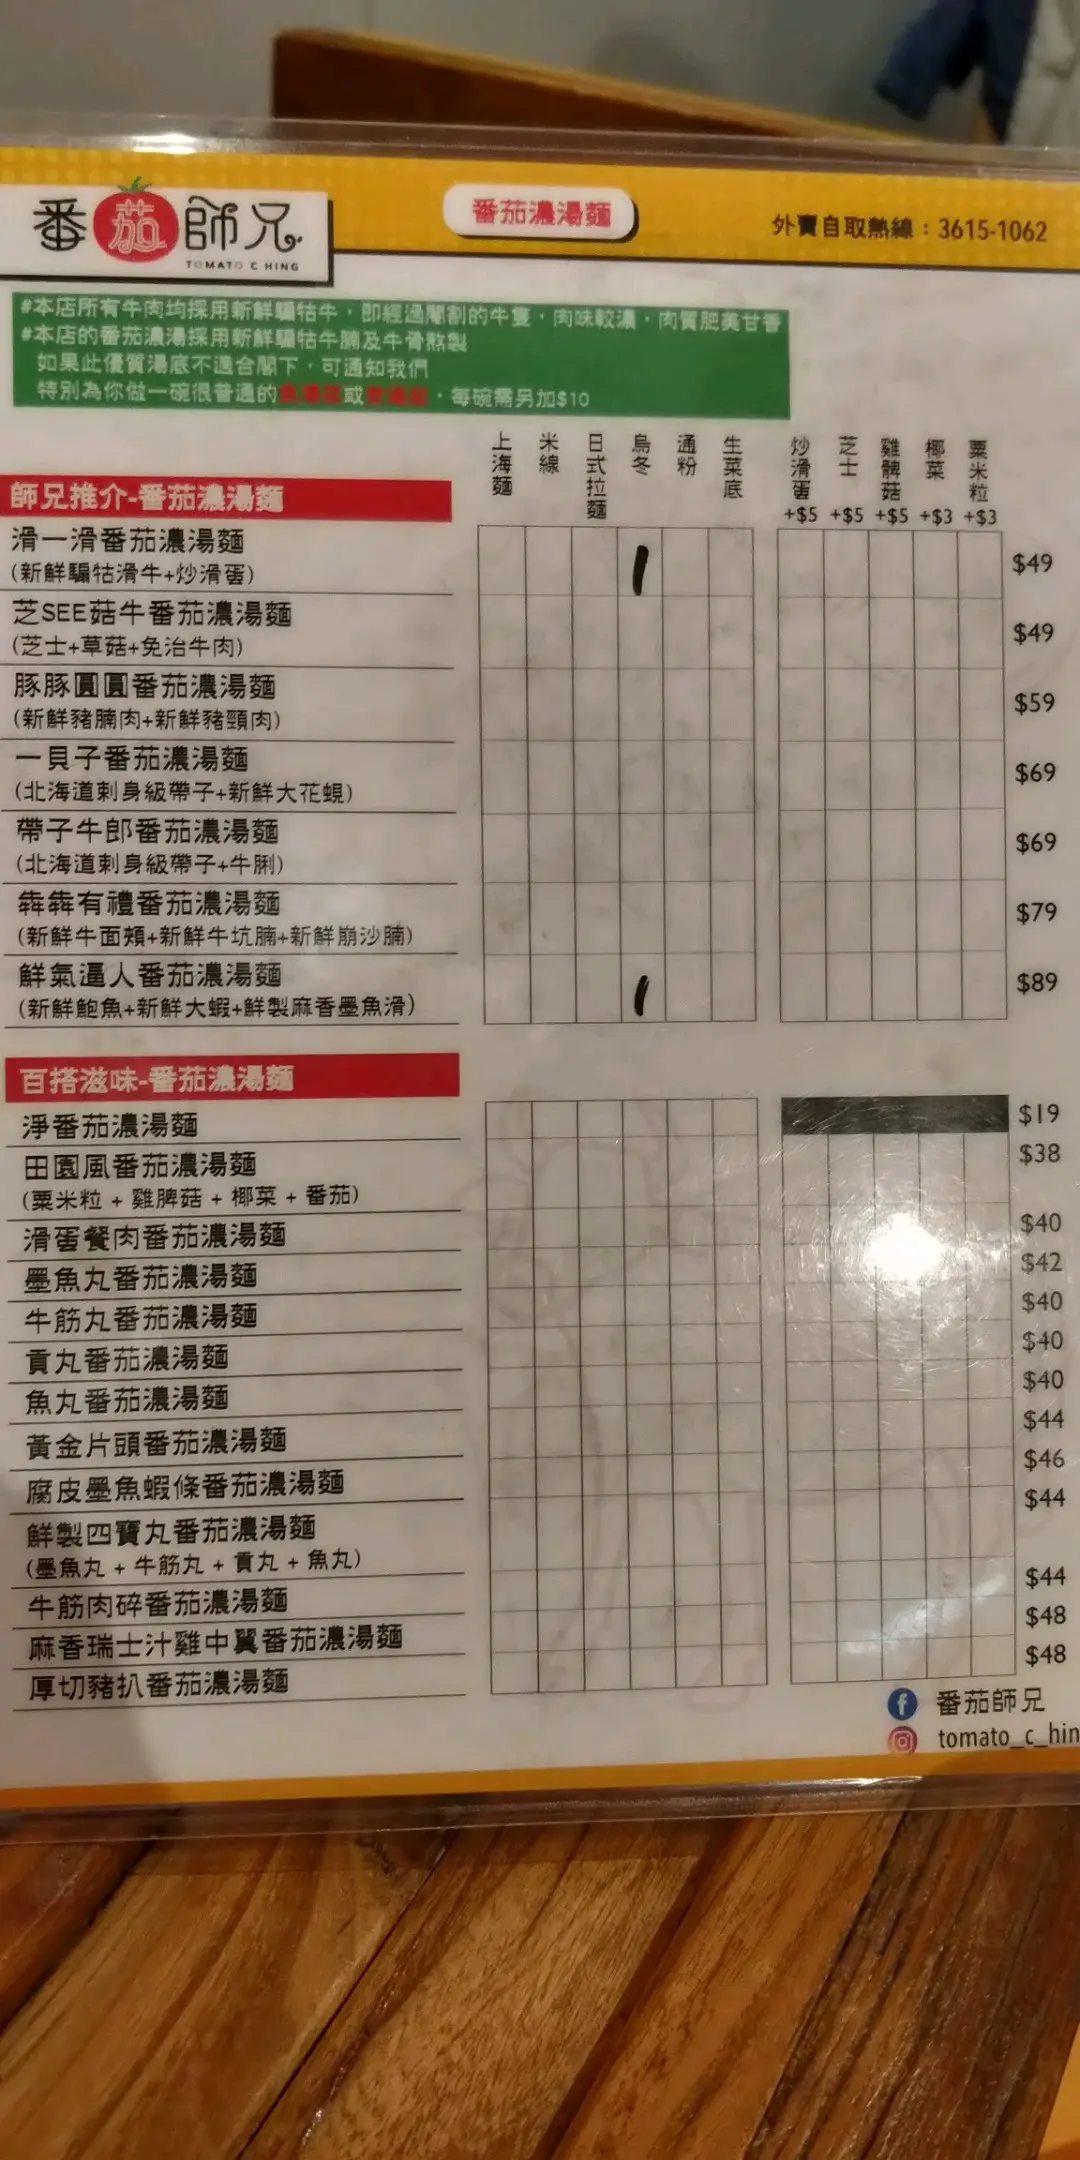 番茄師兄
TOMATO C HING
番茄濃湯麵
外賣自取熱線：3615-1062
#本店所有牛肉均採用新鮮騸牯牛，即經過閹割的牛隻，肉味較濃，肉質肥美甘香
#本店的番茄濃湯採用新鮮騸牯牛腩及牛骨熬製
如果此優質湯底不適合閣下，可通知我們
特別為你做一碗很普通的或，每碗需另加$10
上海麵 米線 日式拉麵 烏冬 通粉 生菜底 炒滑蛋+$5 芝士+$5 雞髀菇+$5 椰菜+$3 粟米粒+$3
師兄推介-番茄濃湯麵
滑一滑番茄濃湯麵 $49
(新鮮騸牯滑牛+炒滑蛋)
芝SEE菇牛番茄濃湯麵 $49
(芝士+草菇+免治牛肉)
豚豚圓圓番茄濃湯麵 $59
(新鮮豬腩肉+新鮮豬頸肉)
一貝子番茄濃湯麵 $69
(北海道刺身級帶子+新鮮大花蜆)
帶子牛郎番茄濃湯麵 $69
(北海道刺身級帶子+牛脷)
犇犇有禮番茄濃湯麵 $79
(新鮮牛面頰+新鮮牛坑腩+新鮮崩沙腩)
鮮氣逼人番茄濃湯麵 $89
(新鮮鮑魚+新鮮大蝦+鮮製麻香墨魚滑)
百搭滋味-番茄濃湯麵
淨番茄濃湯麵 $19
田園風番茄濃湯麵 $38
(粟米粒 + 雞脾菇 + 椰菜 + 番茄)
滑蛋餐肉番茄濃湯麵 $40
墨魚丸番茄濃湯麵 $42
牛筋丸番茄濃湯麵 $40
貢丸番茄濃湯麵 $40
魚丸番茄濃湯麵 $40
黃金片頭番茄濃湯麵 $44
腐皮墨魚蝦條番茄濃湯麵 $46
鮮製四寶丸番茄濃湯麵 $44
(墨魚丸 + 牛筋丸 + 貢丸 + 魚丸)
牛筋肉碎番茄濃湯麵 $44
麻香瑞士汁雞中翼番茄濃湯麵 $48
厚切豬扒番茄濃湯麵 $48
番茄師兄
tomato_c_hin